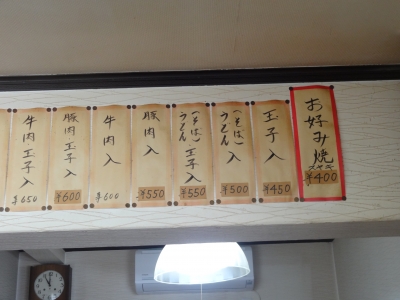 お好み焼
スヤキ
¥400
玉子入
¥450
(そば)
うどん 入
¥500
(そば)
うどん 玉子入
¥550
豚肉入
¥550
牛肉入
¥600
豚肉玉子入
¥600
牛肉玉子入
¥650